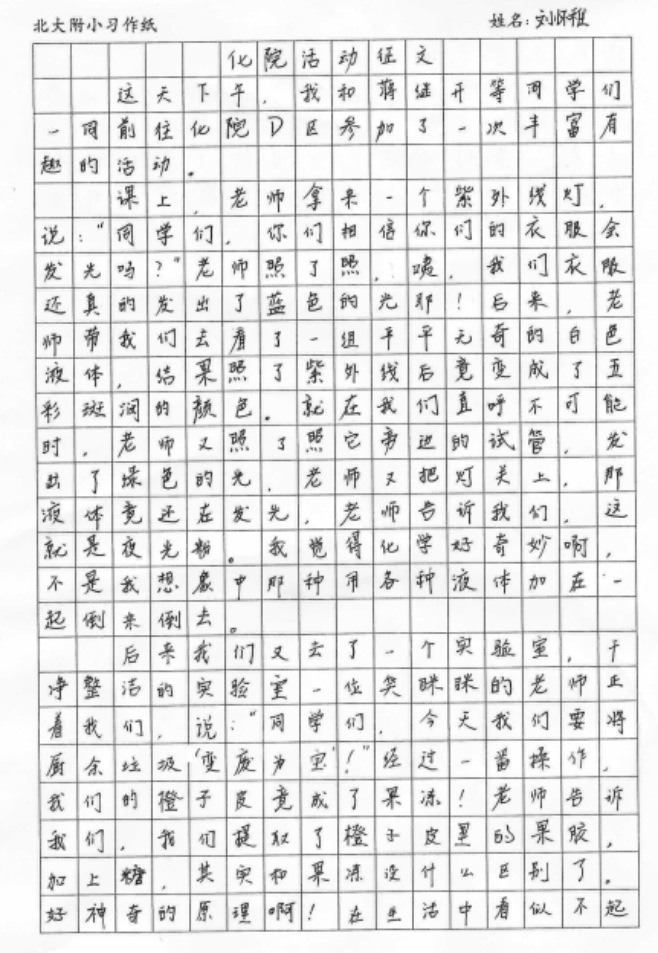 北大附小习作纸 姓名:刘怀稚
化院活动征文
这天下午,我和蒋继开等同学们
一同前往化院D区参加了一次丰富有
趣的活动。
课上,老师拿来一个紫外线灯,
说:“同学们,你们相信你们的衣服会
发光吗?”老师照了照,咦,我们衣服
还真的发出了蓝色的光耶!后来,老
师带我们去看了一组平平无奇的白色
液体,结果照了紫外线后竟变成了五
彩斑斓的颜色。就在我们直呼不可能
时,老师又照了照它旁边的试管,发
出了绿色的光,老师又把灯关上,那
液体竟还在发光,老师告诉我们,这
就是夜光粉。我觉得化学好奇妙啊,
不是我想象中那种用各种液体加在一
起倒来倒去。
后来我们又去了一个实验室,干
净整洁的实验室一位笑眯眯的老师正
着我们,说:“同学们,今天我们要将
厨余垃圾‘变废为宝’!”经过一番操作,
我们的橙子皮竟成了果冻!老师告诉
我们,我们提取了橙子皮里的果胶,
加上糖,其实和果冻没什么区别了。
好神奇的原理啊!在生活中看似不起